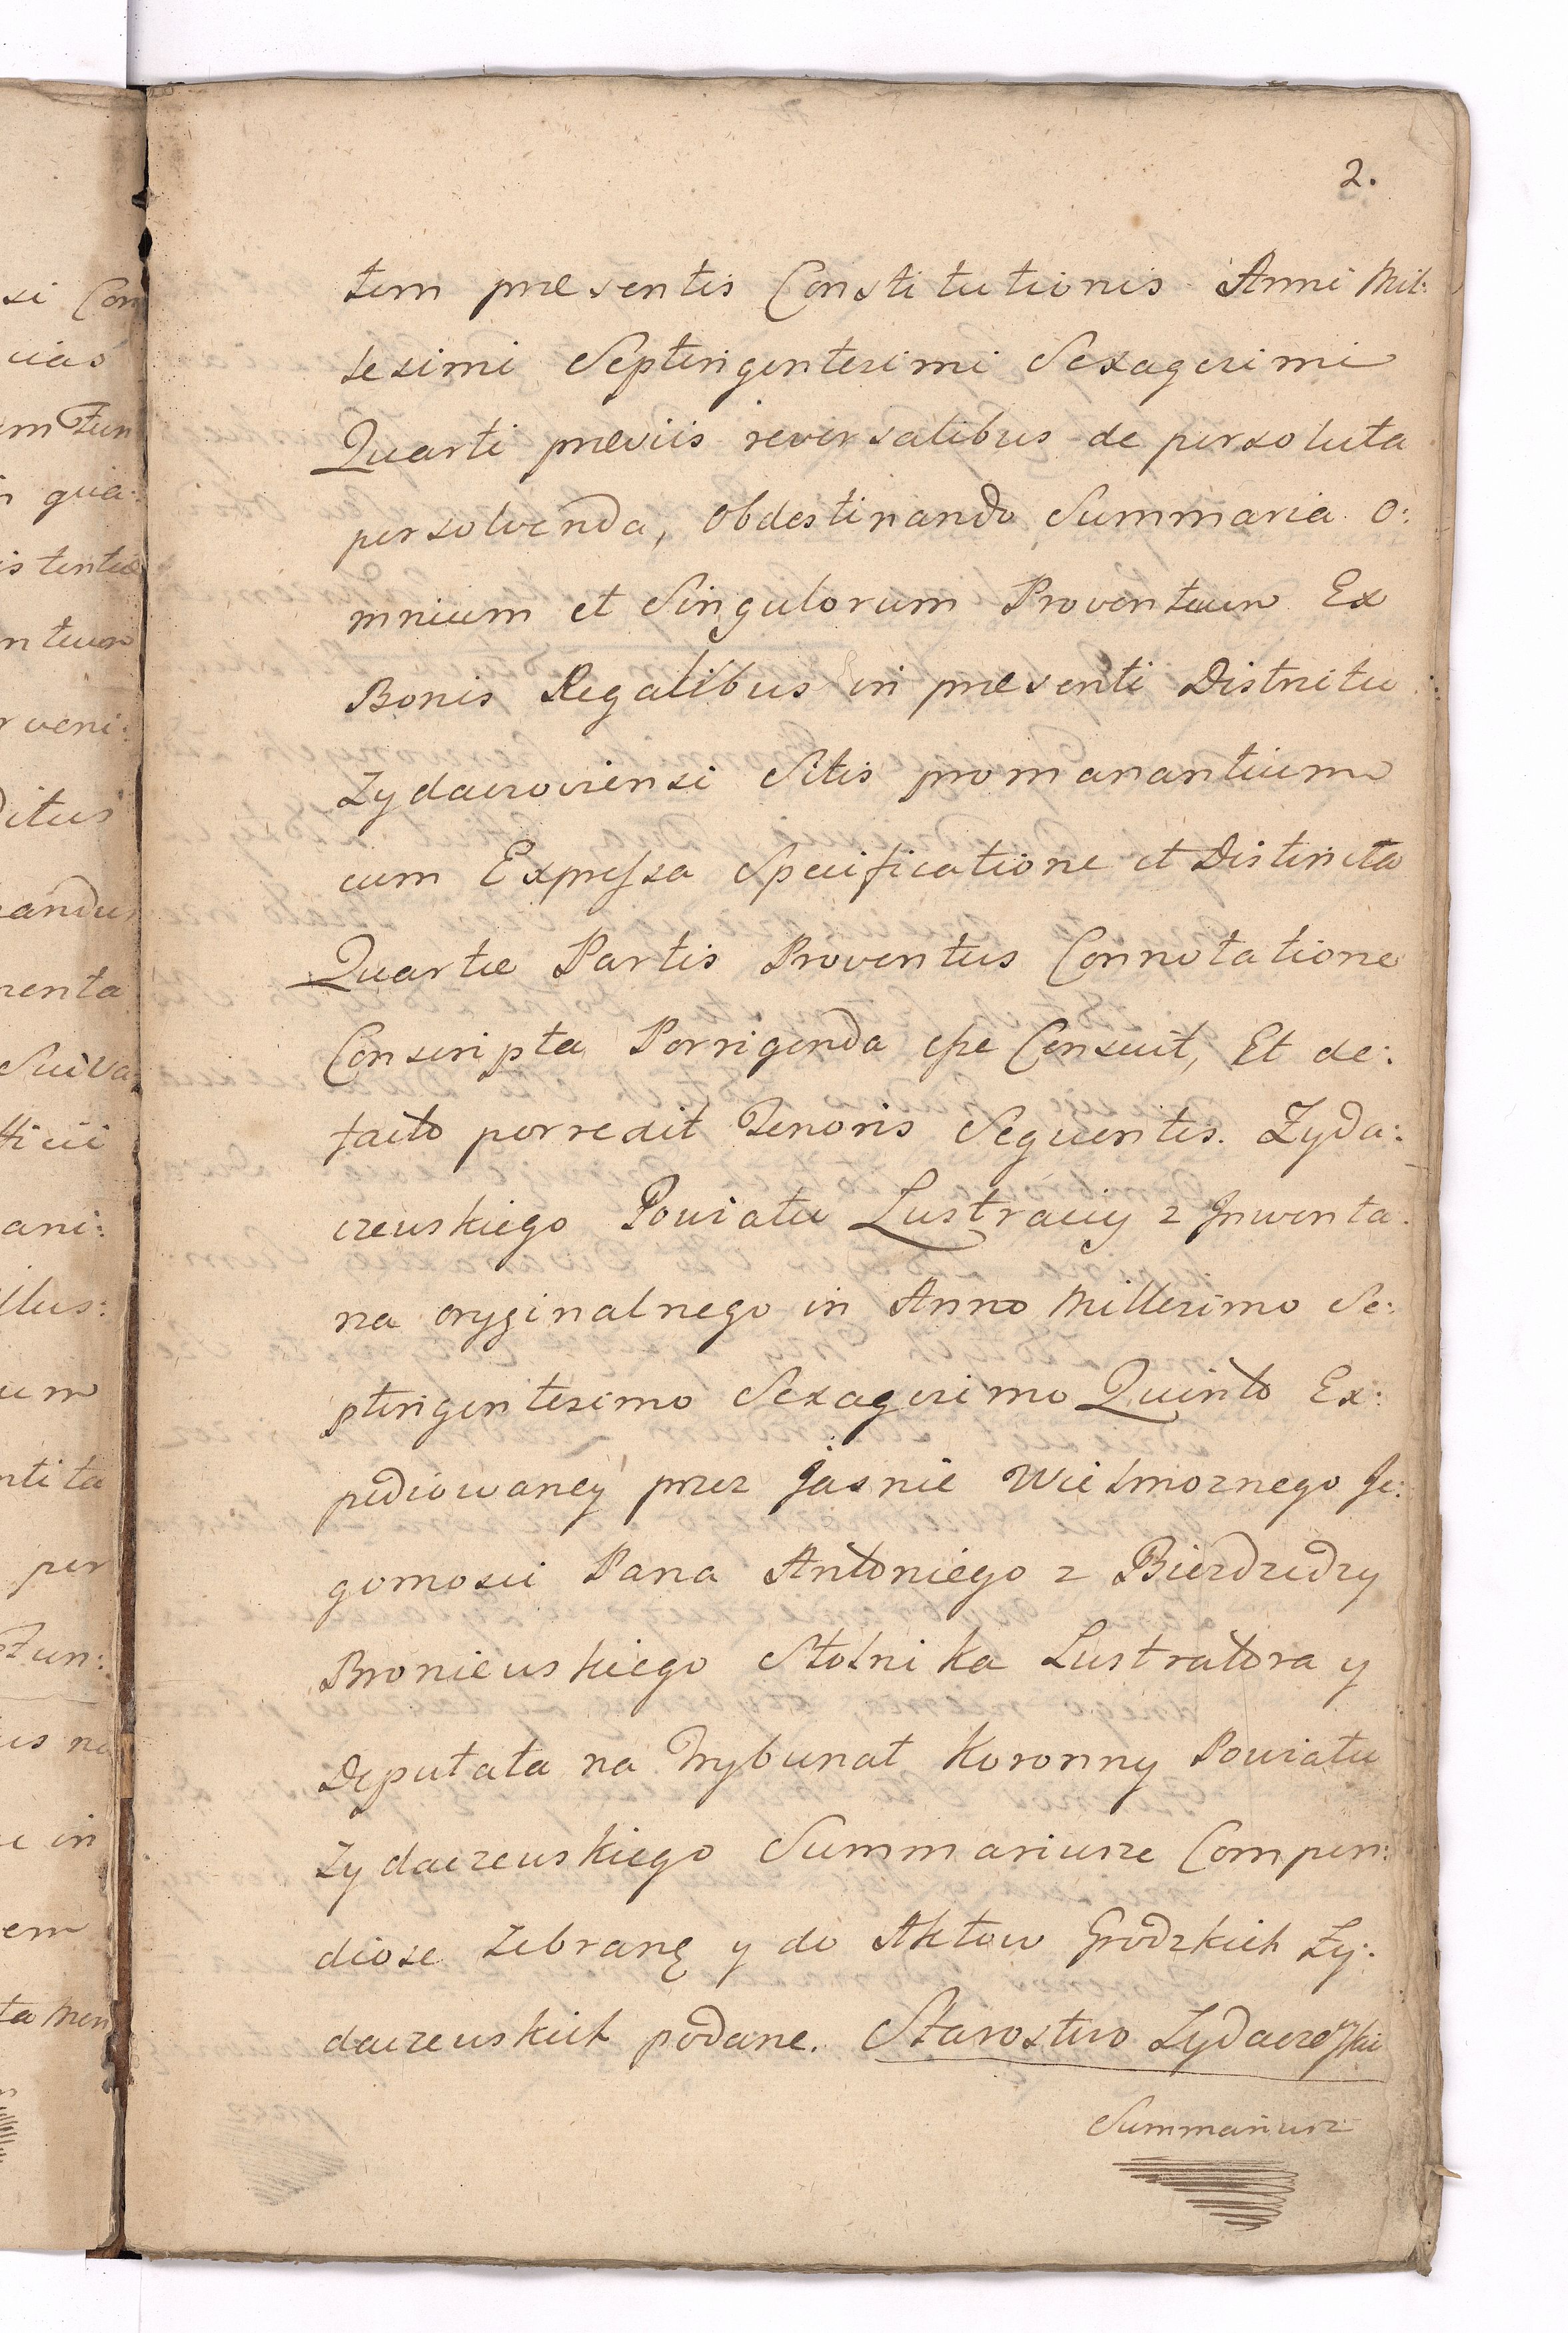 2.
tem præsentis Constitutionis Anni Mil:
lesimi Septingentesimi Sexagesimi
Quarti præviis reversalibus de persoluta
persolvenda, obdestinando Summaria O:
mnium et Singulorum Proventuum Ex
Bonis Regalibus in præsenti Districtu
Zydaczoviensi Sitis promanantium
cum Expressa Specificatione et Distincta
Quartæ Partis Proventus Connotatione
Conscripta Porrigenda esse Censuit, Et de:
facto porredit Tenoris Sequentis. Zyda:
czewskiego Powiatu Lustracyi z Jnwenta:
rza oryginalnego in Anno Millesimo Se:
ptingentesimo Sexagesimo Quinto Ex:
pediowaney przez Jasnie Wielmoznego Je:
gomosci Pana Antoniego z Bierdzedzy
Broniewskiego Stolnika Lustratora y
Deputata na Trybunał Koronny Powiatu
Zydaczewskiego Summariusze Compen:
diose zebranę y do Aktow Grodzkich Zy:
daczewskich podane. Starostwo Zydaczewskie
Summariusz
si Con
cias
em Fun
quæ:
istentiæ
ntuum
r veni:
ditus
andum
menta
Sui Va
ttici
ani:
llus:
um
ntita
per
Fun:
us na
e in
em
ta Men